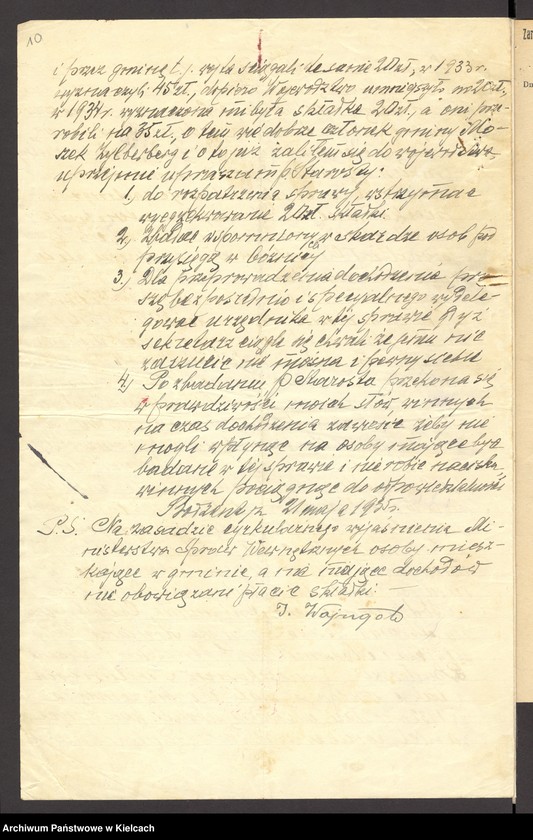 10
i przez gminę t. j. ryta ściągali te same 20zł, w 1933 r.
wyznaczyli 45 zł, dopiero Województwo umniejszyło na 20zł,
w 1934 r. wyznaczona mi była składka 20zł, a oni prze-
robili na 35 zł. o tem wie dobrze członek gminy Mo-
szek Zylberberg i o to już żaliłem się do województwa,
uprzejmie upraszam p. Starosty:
1) do rozpatrzenia sprawy wstrzymać
wyegzekwowanie 20zł. składki
2) Zbadać wspomniony w skardze osob pod
przysięgą w bóżnicy
3) Dla przeprowadzenia dochodzenia pro-
szę bezpośrednio i specjalnego wydele-
gować urzędnika w tej sprawie gdyż
sekretarz ciągle się chwali że jemu nic
zarzucić nie można i pewny siebie
4) Po zbadaniu p. Starosta przekona się
o prawdziwości moich słów, winnych
na czas dochodzenia zawiesić żeby nie
mogli wpłynąć na osoby mające być
badane w tej sprawie i nie robić nacisku,
winnych pociągnąć do odpowiedzialności
Bodzentyn 21 maja 1935 r.
P.S. Na zasadzie cyrkularnego wyjaśnienia Mi-
nisterstwa Spraw Wewnętrznych osoby miesz-
kające w gminie, a nie mające dochodów
nie obowiązani płacić składki. —
J. Wajngold
Archiwum Państwowe w Kielcach